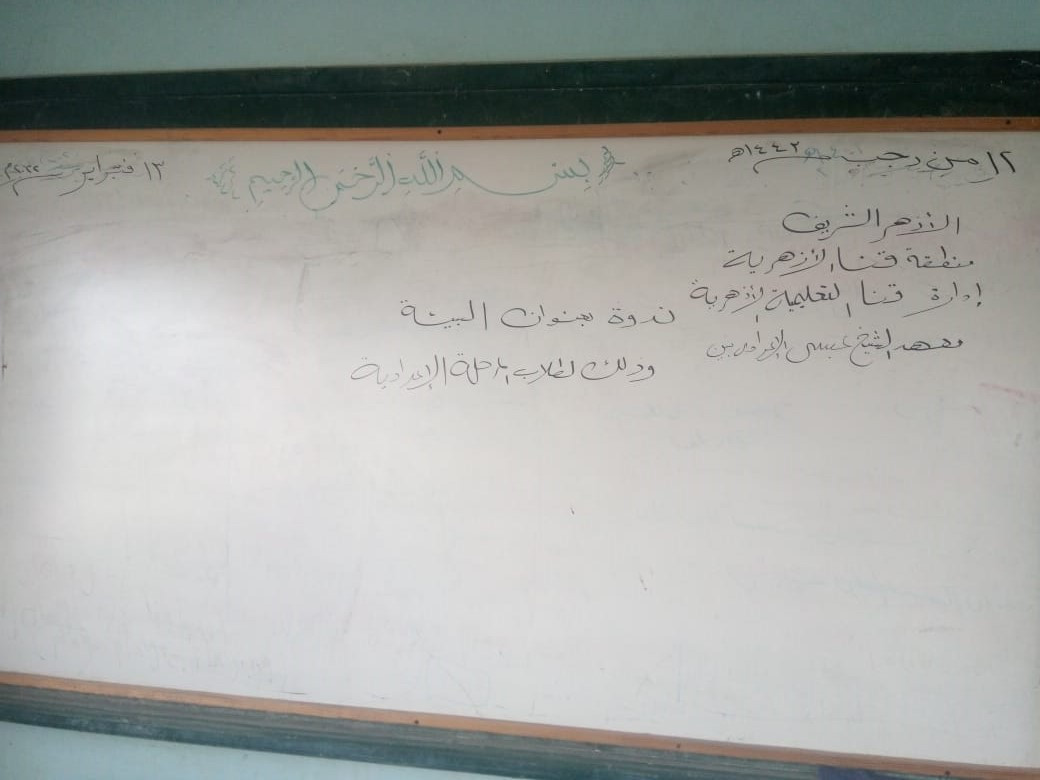 ١٢ من رجب ١٤٤٢هـ
بسم الله الرحمن الرحيم
١٣ فبراير ٢٠٢٢م
الأزهر الشريف
منطقة قنا الأزهرية
إدارة قنا التعليمية الأزهرية
معهد الشيخ عيسى
ندوة بعنوان البيئة
وذلك لطلاب المرحلة الإعدادية